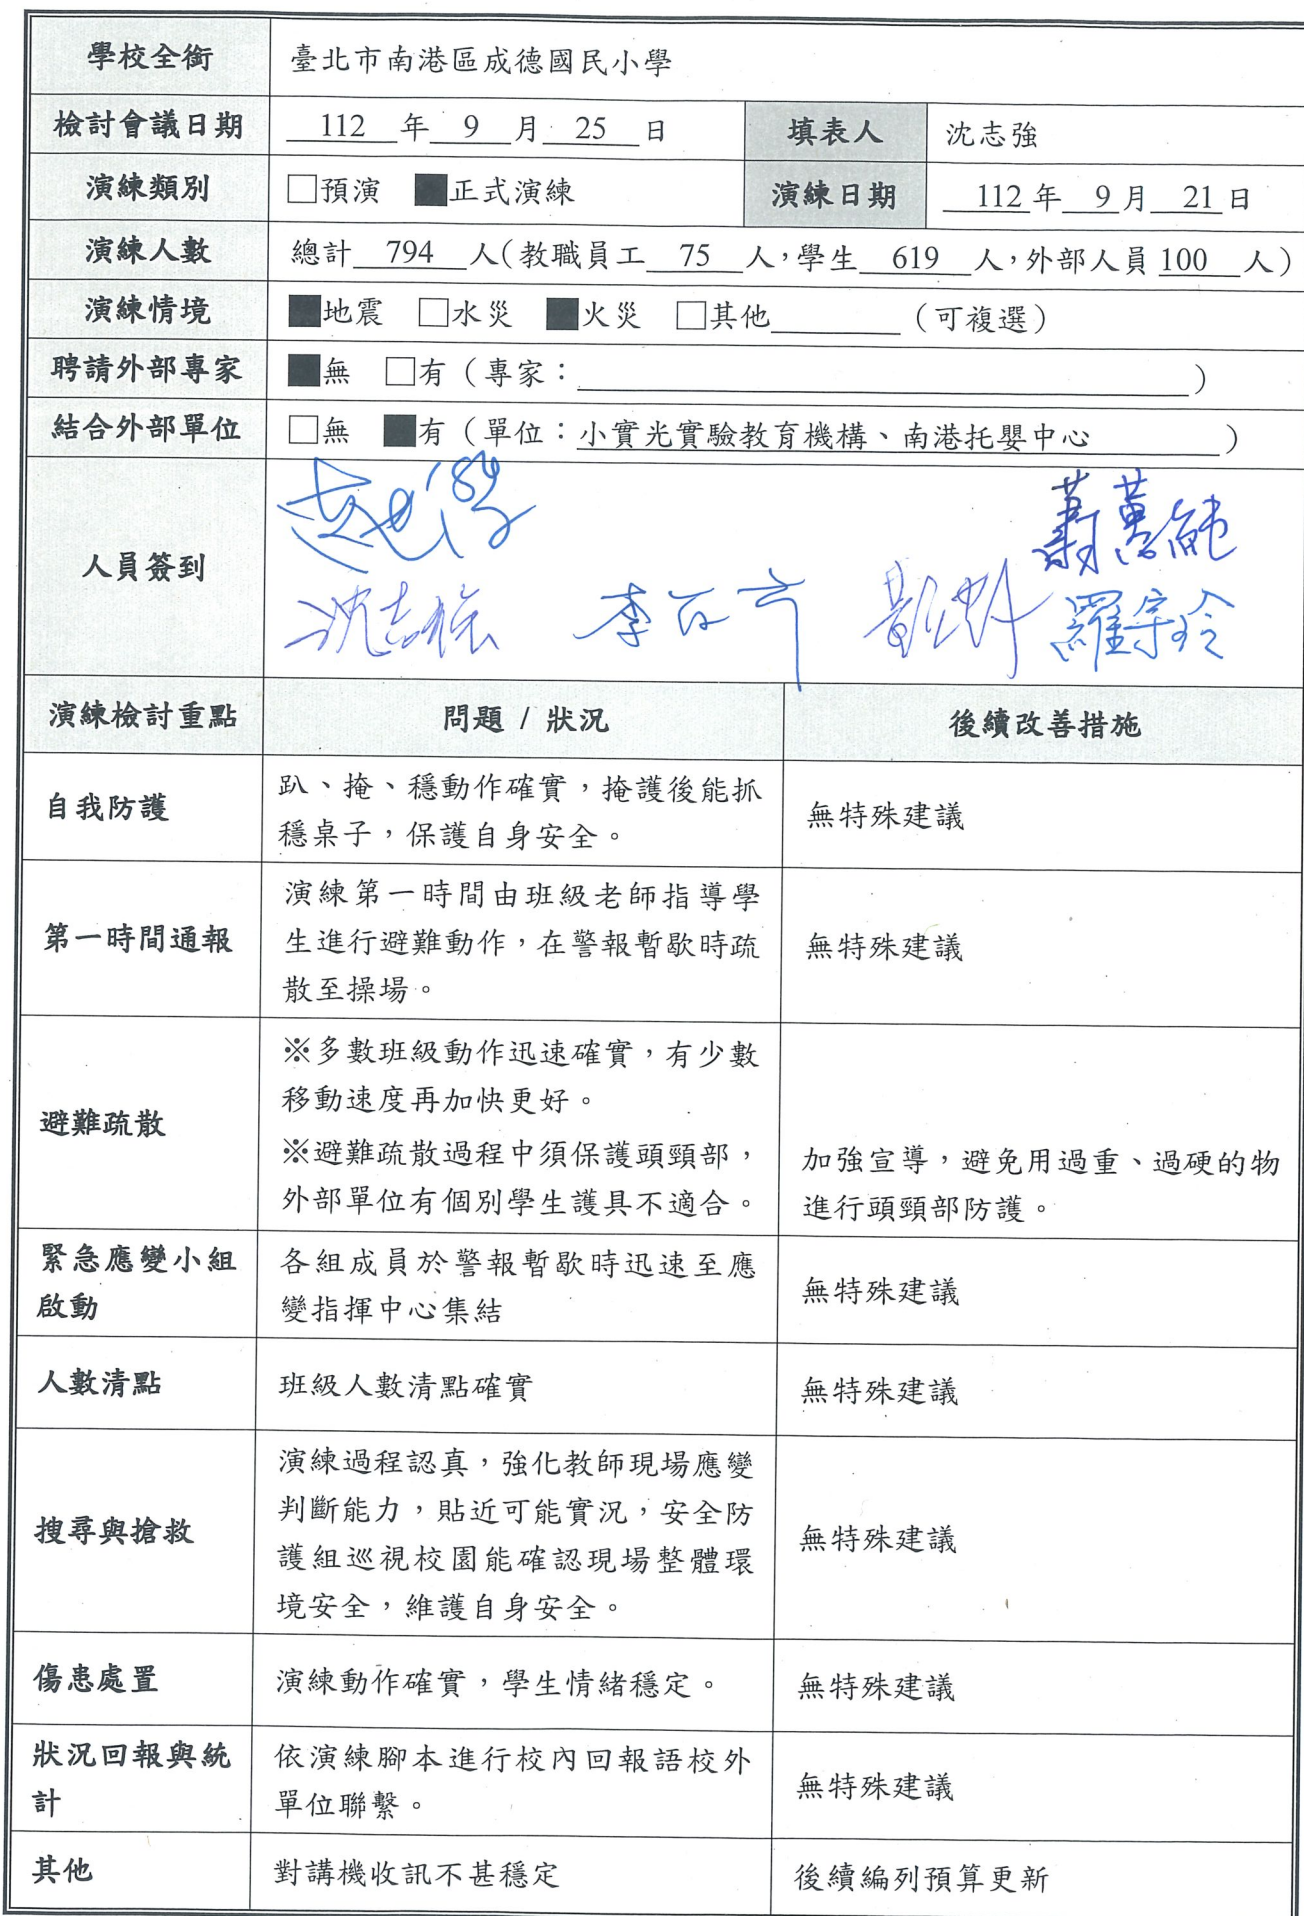 學校全銜 臺北市南港區成德國民小學
檢討會議日期 112 年 9 月 25 日 填表人 沈志強
演練類別 □預演 ■正式演練 演練日期 112 年 9 月 21 日
演練人數 總計 794 人(教職員工 75 人,學生 619 人,外部人員 100 人)
演練情境 ■地震 □水災 ■火災 □其他________(可複選)
聘請外部專家 ■無 □有(專家:________)
結合外部單位 □無 ■有(單位:小實光實驗教育機構、南港托嬰中心 )
人員簽到
沈志強 羅宗玲
演練檢討重點 問題 / 狀況 後續改善措施
自我防護
趴、掩、穩動作確實,掩護後能抓
穩桌子,保護自身安全。
無特殊建議
第一時間通報
演練第一時間由班級老師指導學
生進行避難動作,在警報暫歇時疏
散至操場。
無特殊建議
避難疏散
※多數班級動作迅速確實,有少數
移動速度再加快更好。
※避難疏散過程中須保護頭頸部,
外部單位有個別學生護具不適合。
加強宣導,避免用過重、過硬的物
進行頭頸部防護。
緊急應變小組
啟動
各組成員於警報暫歇時迅速至應
變指揮中心集結
無特殊建議
人數清點 班級人數清點確實 無特殊建議
搜尋與搶救
演練過程認真,強化教師現場應變
判斷能力,貼近可能實況,安全防
護組巡視校園能確認現場整體環
境安全,維護自身安全。
無特殊建議
傷患處置 演練動作確實,學生情緒穩定。 無特殊建議
狀況回報與統
計
依演練腳本進行校內回報語校外
單位聯繫。
無特殊建議
其他 對講機收訊不甚穩定 後續編列預算更新